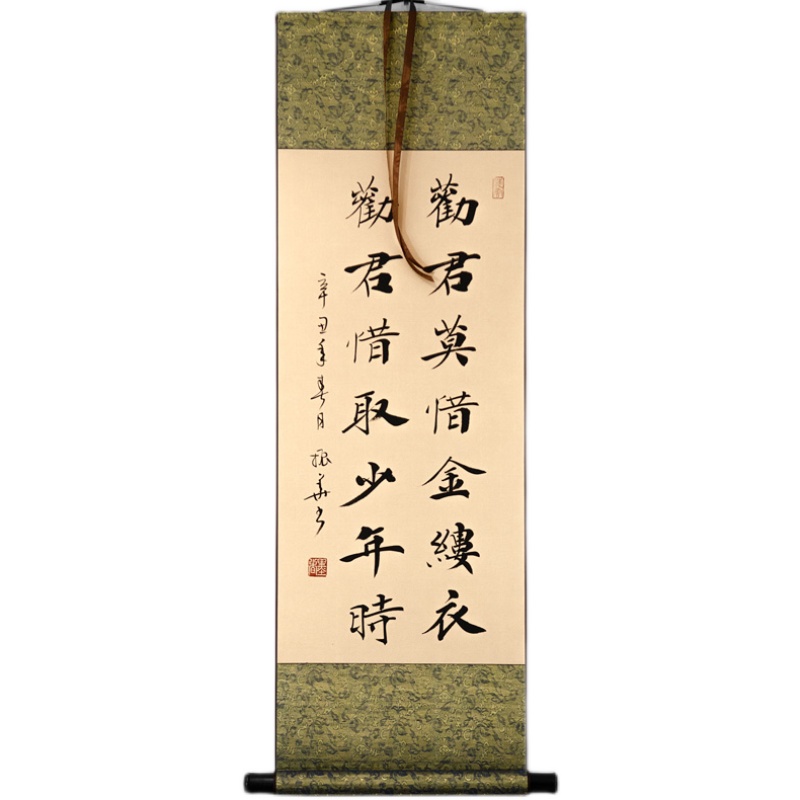 勸君莫惜金縷衣
勸君惜取少年時
辛丑年春月振華书